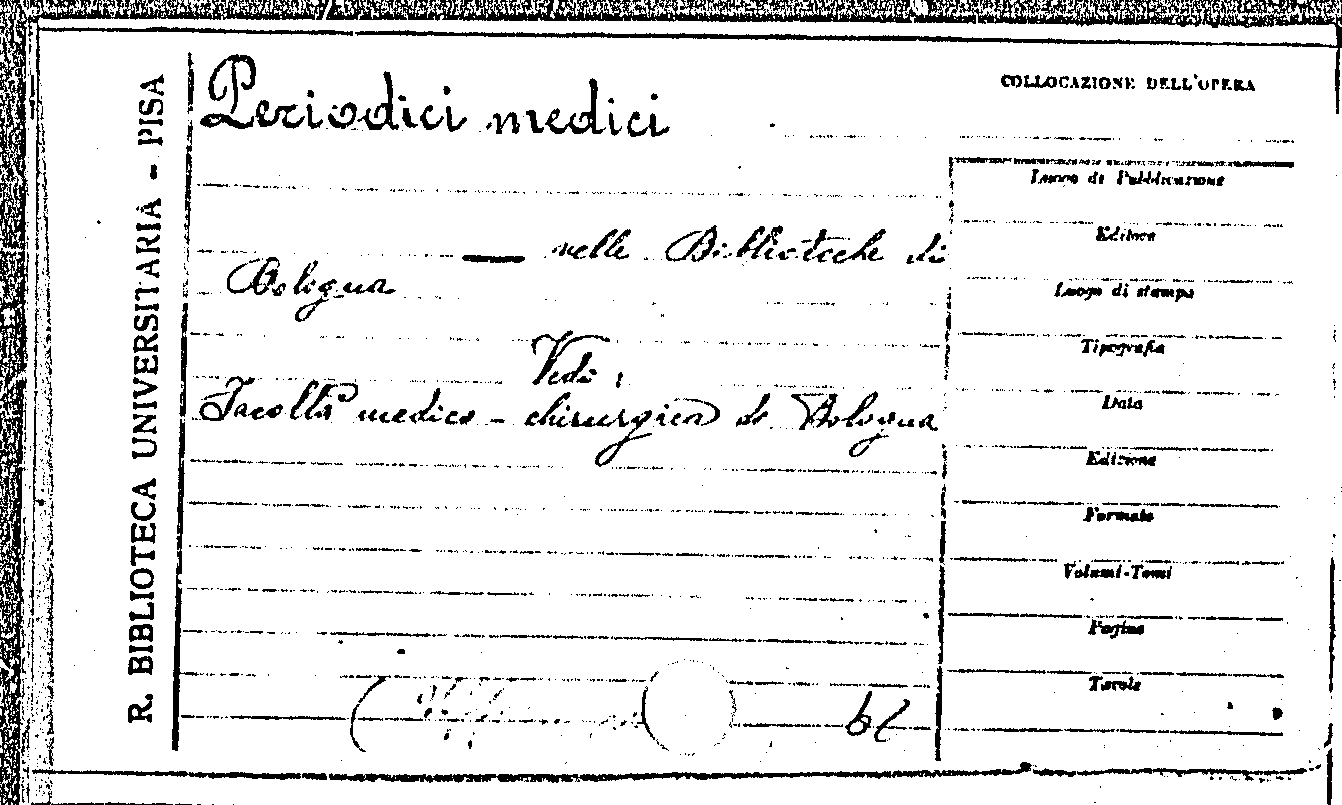 R. BIBLIOTECA UNIVERSITARIA - PISA
Periodici medici
COLLOCAZIONE DELL'OPERA
Luogo di Pubblicazione
— nelle Biblioteche di
Bologna
Vedi:
Facoltà medico-chirurgica di Bologna
Editore
Luogo di stampa
Tipografia
Data
Edizione
Formato
Volumi-Tomi
Pagine
Tavole